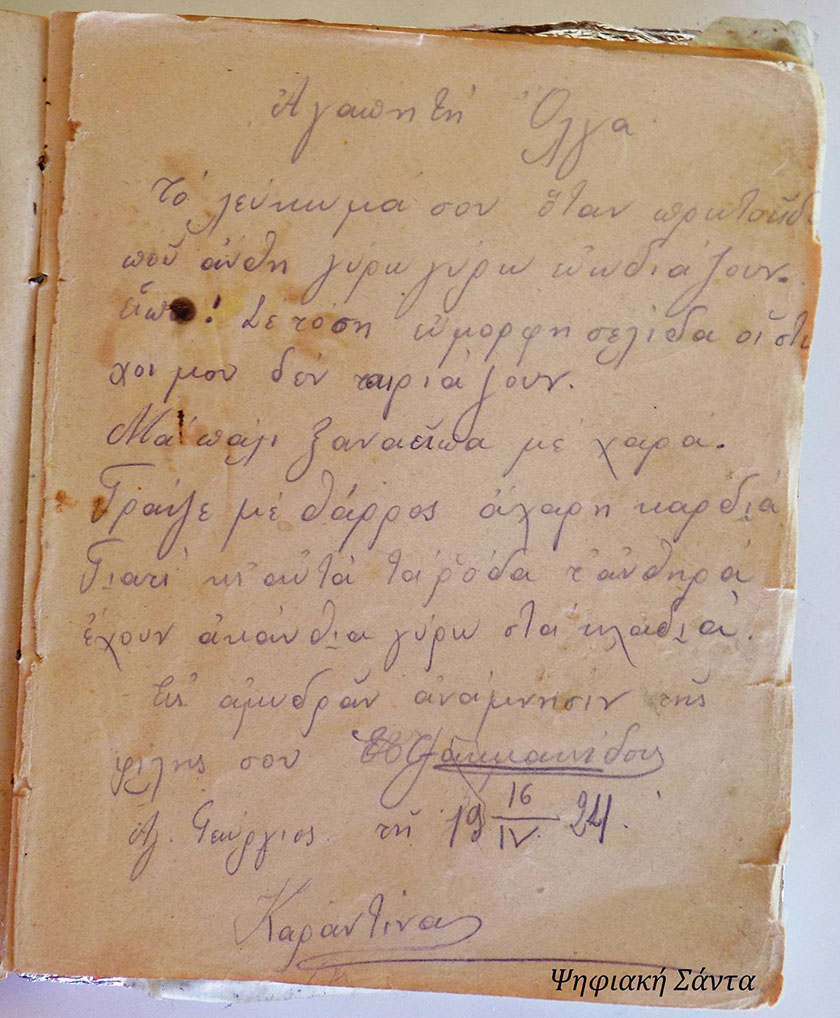 Ἀγαπητή Ὄλγα
Τό λεύκωμά σου ὅταν πρωτοεῖδα
ποῦ ἄνθη γύρω γύρω εὐωδιάζουν.
εἶπα! Σε τόση εὔμορφη σελίδα οἱ στί
χοι μου δέν ταιριάζουν.
Μά πάλι ξαναεῖπα μέ χαρά.
Γράψε μέ θάρρος ἄχαρη καρδιά
Γιατί κι' αὐτά τά ρόδα τ' ἀνθηρά
ἔχουν ἀκάνθια γύρω στά κλαδιά.
Εἰς ἀμυδράν ἀνάμνησιν τῆς
φίλης σου
Αγ. Γεώργιος τῇ 19 16/IV 24.
Καραντίνα
Ψηφιακή Σάντα